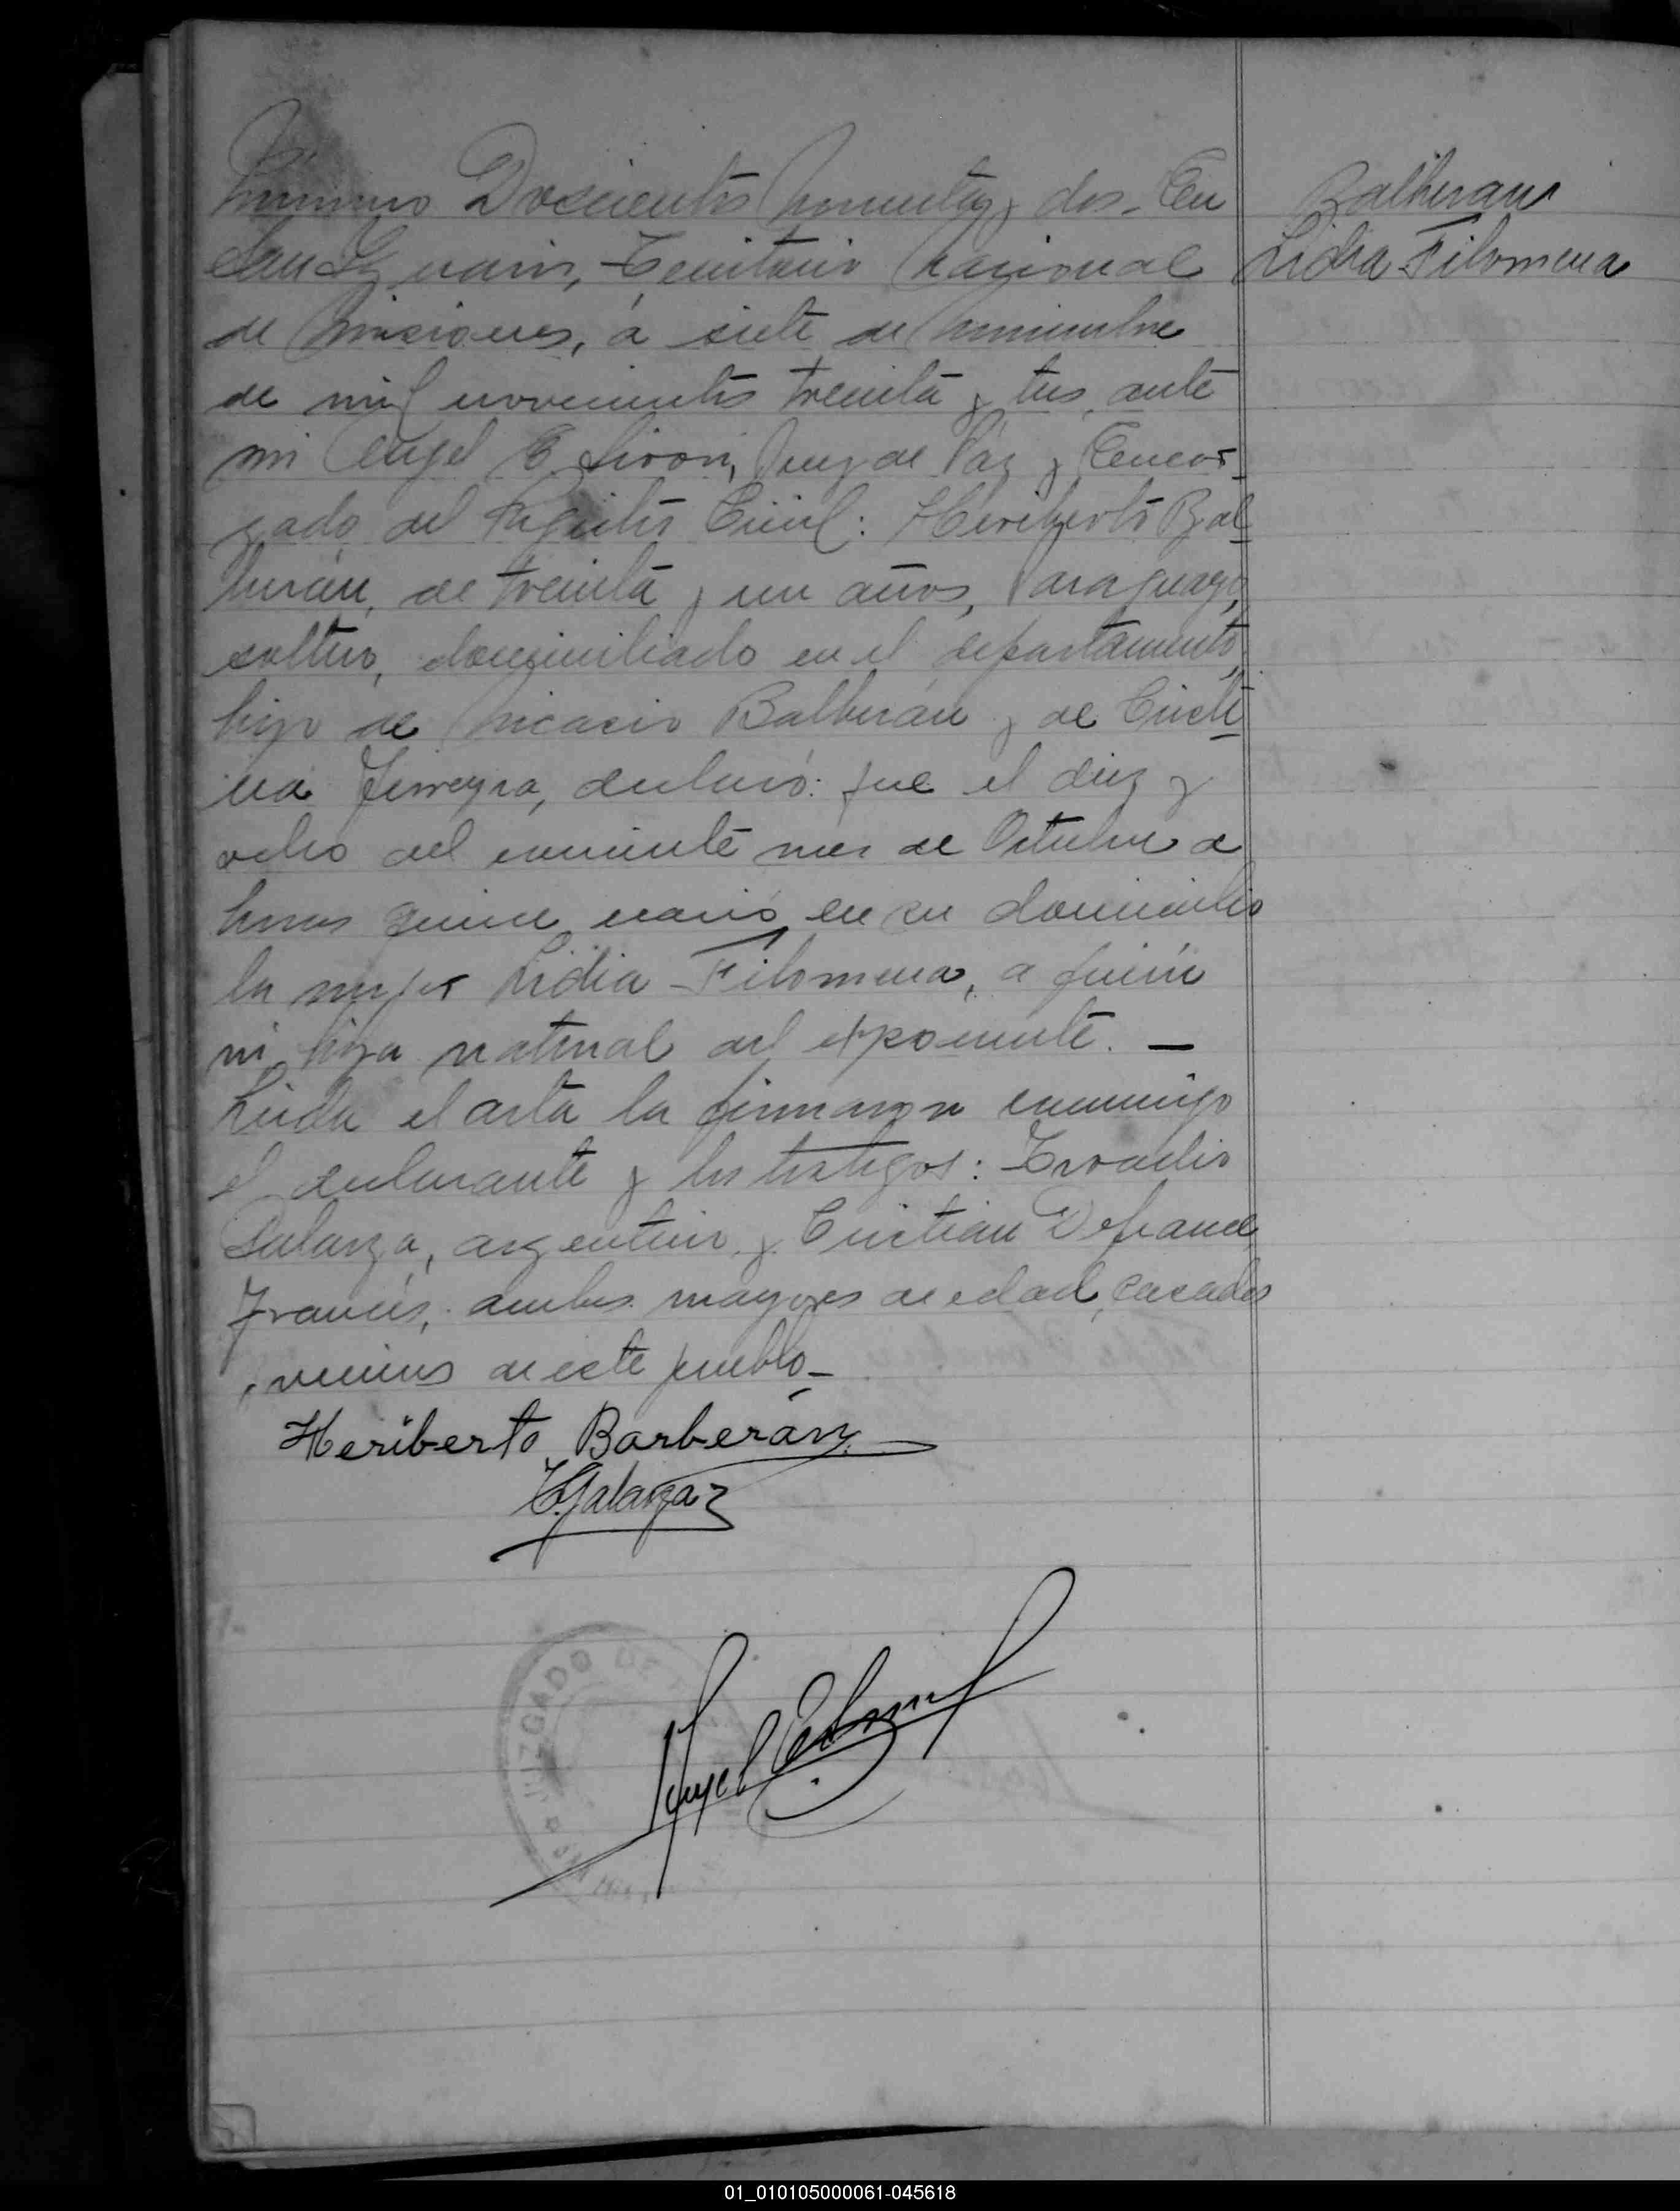 Número Doscientos Noventa y dos. En
San Ygnacio, Territorio Nacional
de Misiones, á siete de Noviembre
de mil novecientos treinta y tres, ante
mi Angel E. Juez de Páz y Encar-
gado del Registro Civil: Heriberto Bal-
berán, de treinta y un años, Paraguayo,
soltero, domiciliado en el departamento,
hijo de Nicasio Balberán y de Cristi-
na Ferreyra, declaró: que el diez y
ocho del corriente mes de Octubre a
horas quince nació en su domicilio
la mujer Lidia Filomena, a quién
vi hija natural del exponente. —
Leida el acta la firmaron conmigo
el declarante y los testigos:
Galarza, argentino y Cristian Defrance,
Francés, ambos mayores de edad, casados
vecinos de este pueblo —
Balberan
Lidia Filomena
Heriberto Barberán
Galarza
JUZGADO DE
Angel
01_010105000061-045618